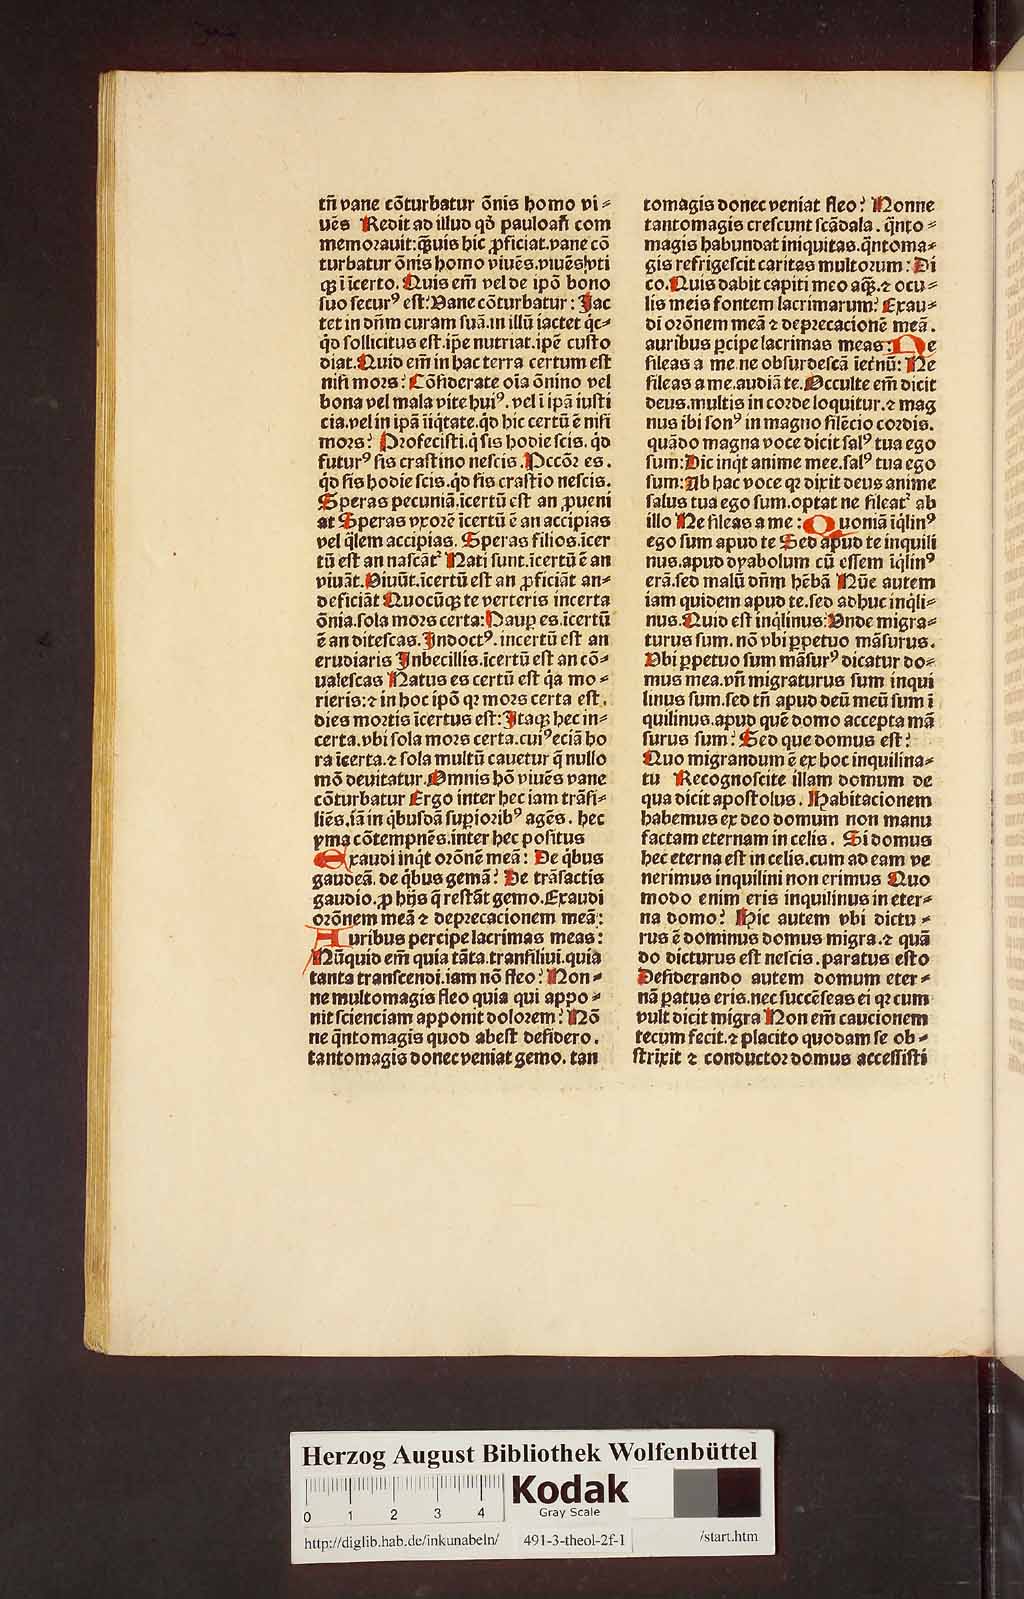 tn̄ vane cōturbatur ōnis homo vi⸗
uēs Redit ad illud qd̓ pauloan̄ com
memorauit:q̄uis hic ꝓficiat.vane cō
turbatur ōnis homo viuēs.viuēs/vti
qꝫ ī īcerto. Quis em̄ vel de ip̄o bono
suo secur⁹ est:Vane cōturbatur: Iac
tet in dn̄m curam suā.in illū iactet q̇c⸗
q̇d sollicitus est.ip̄e nutriat.ip̄e custo
diat.Quid em̄ in hac terra certum est
nisi mors? Cōsiderate oīa ōnino vel
bona vel mala vite hui⁹. vel ī ip̄a iusti
cia.vel in ip̄a īiq̇tate.q̇d hic certū ē nisi
mors? Profecisti.q̇ sis hodie scis. q̇d
futur⁹ sis crastino nescis.Pccōr es.
q̇d sis hodie scis.q̇d sis crastīo nescis.
Speras pecuniā.īcertū est an ꝓueni
at Speras vxorē īcertū ē an accipias
vel q̄lem accipias. Speras filios.īcer
tū est an nascāt᷑ Nati sunt.īcertū ē an
viuāt.Viuūt.īcertū est an ꝓficiāt an⸗
deficiāt Quocūqꝫ te verteris incerta
ōnia.sola mors certa:Paup̱ es.īcertū
ē an ditescas.Indoct⁹.incertū est an
erudiaris Inbecillis.īcertū est an cō⸗
ualescas Natus es certū est q̇a mo⸗
rieris:⁊ in hoc ip̄o qꝛ mors certa est.
dies mortis īcertus est:Itaqꝫ hec in⸗
certa.vbi sola mors certa.cui⁹eciā ho
ra īcerta.⁊ sola multū cauetur q̄ nullo
mō deuitatur.Omnis hō viuēs vane
cōturbatur Ergo inter hec iam trāsi⸗
liēs.iā in q̇busdā supiorib⁹ agēs. hec
yma cōtempnēs.inter hec positus
Exaudi inq̇t orōnē meā: De q̇bus
gaudeā. de q̇bus gemā? De trāsactis
gaudio.ꝓ hijs q̄ restāt gemo.Exaudi
orōnem meā ⁊ deprecacionem meā:
Auribus percipe lacrimas meas:
Nūquid em̄ quia tāta.transiliui.quia
tanta transcendi.iam nō fleo? Non⸗
ne multomagis fleo quia qui appo⸗
nit scienciam apponit dolorem? Nō
ne q̄ntomagis quod abest desidero.
tantomagis donec veniat gemo. tan
tomagis donec veniat fleo? Nonne
tantomagis crescunt scādala. q̄nto⸗
magis habundat iniquitas.q̄ntoma⸗
gis refrigescit caritas multorum: Di
co.Quis dabit capiti meo aqꝫ.⁊ ocu⸗
lis meis fontem lacrimarum? Exau⸗
di orōnem meā ⁊ deprecacionē meā.
auribus p̱cipe lacrimas meas: Ne
sileas a me.ne obsurdescā īet̓nū: Ne
sileas a me.audiā te.Occulte em̄ dicit
deus.multis in corde loquitur.⁊ mag
nus ibi son⁹ in magno silēcio cordis.
quādo magna voce dicit sal⁹ tua ego
sum:Dic inq̇t anime mee.sal⁹ tua ego
sum:Ab hac voce qꝛ dixit deus anime
salus tua ego sum.optat ne sileat᷑ ab
illo Ne sileas a me : Quoniā īq̇lin⁹
ego sum apud te Sed apud te inquili
nus.apud dyabolum cū essem īq̇lin⁹
erā.sed malū dn̄m hēbā Nūc autem
iam quidem apud te.sed adhuc inq̇li⸗
nus.Quid est inq̇linus:Vnde migra⸗
turus sum. nō vbi p̱petuo māsurus.
Vbi p̱petuo sum māsur⁹ dicatur do⸗
mus mea.vn̄ migraturus sum inqui
linus sum.sed tn̄ apud deū meū sum ī
quilinus.apud quē domo accepta mā
surus sum? Sed que domus est?
Quo migrandum ē ex hoc inquilina⸗
tu Recognoscite illam domum de
qua dicit apostolus. Habitacionem
habemus ex deo domum non manu
factam eternam in celis. Si domus
hec eterna est in celis.cum ad eam ve
nerimus inquilini non erimus Quo
modo enim eris inquilinus in eter⸗
na domo? Hic autem vbi dictu⸗
rus ē dominus domus migra.⁊ quā
do dicturus est nescis.paratus esto
Desiderando autem domum eter⸗
nā paratus eris.nec succēseas ei qꝛ cum
vult dicit migra Non em̄ caucionem
tecum fecit.⁊ placito quodam se ob⸗
strixit ⁊ conductor domus accessisti
Herzog August Bibliothek Wolfenbüttel
0 1 2 3 4
Kodak
Gray Scale
http://diglib.hab.de/inkunabeln/ 491-3-theol-2f-1 /start.htm